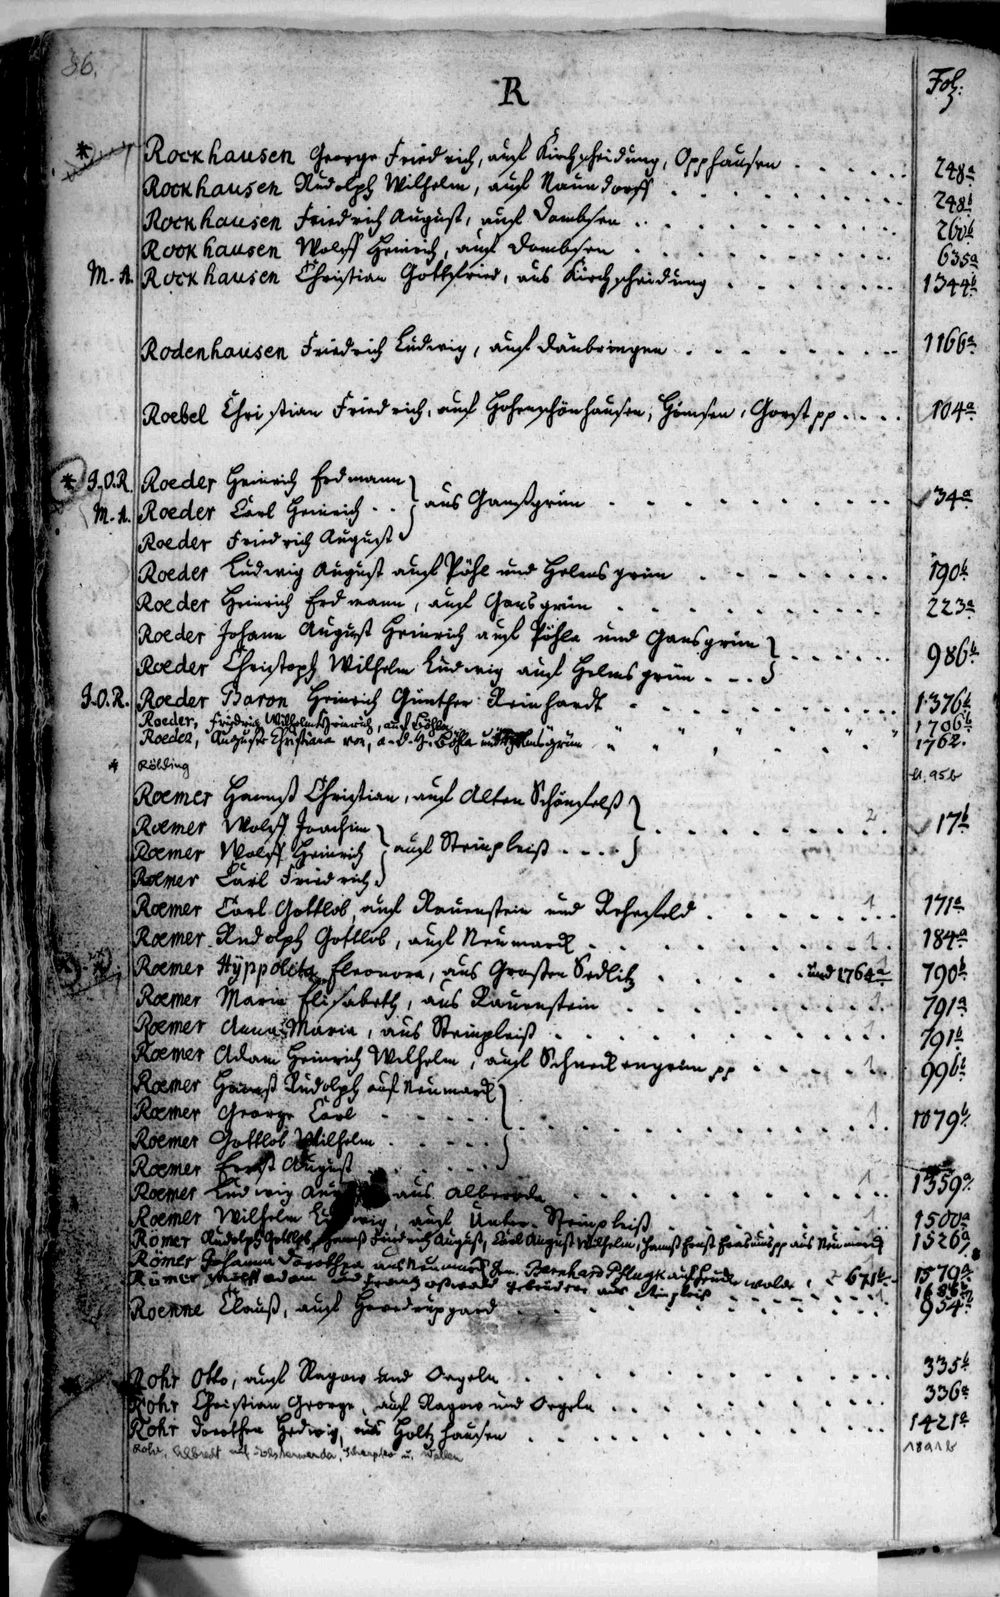 86.
R
Fol:
Rockhausen George Friedrich, auf Kirchscheidung, Opphausen . . . . . . 248a
Rockhausen Rudolph Wilhelm, auf Naundorff . . . . . . 248b
Rockhausen Friedrich August, auf Dombsen . . . . . . 260b
Rockhausen Wolff Heinrich, auf Dombsen . . . . . . 635a
M. A. Rockhausen Christian Gottfried, aus Kirchscheidung . . . . . . 1344b
Rodenhausen Friedrich Ludwig, auf Däubringen . . . . . . 1166a
Roebel Christian Friedrich, auf Hohenschönhausen, Görst pp . . . . 104a
* J.O.R. Roeder Heinrich Erdmann
M. A. Roeder Carl Heinrich . . } aus Gansgrün . . . . . . 34a
Roeder Friedrich August
Roeder Ludwig August auf Pöhl und Helmsgrün . . . . . . 190b
Roeder Heinrich Erdmann, auf Gansgrün . . . . . . 223a
Roeder Johann August Heinrich auf Pöhla und Gansgrün } . . . . . . 986b
Roeder Christoph Wilhelm Ludwig auf Helmsgrün . . . }
J.O.R. Roeder Baron Heinrich Günther Reinhardt . . . . . . 1376b
Roeder, Friedrich Wilhelm Heinrich, auf Pöhla 1706b
Roeder, Auguste Christiane von, a. d. H. Pöhla und Helmsgrün 1762.
* Röhling 95b
Roemer Hannß Christian, auf Alten Schönfelß }
Roemer Wolff Joachim . . . . . . 2 17b
Roemer Wolff Heinrich } auf Steinpleiß . . . . }
Roemer Carl Friedrich
Roemer Carl Gottlob auf Rauenstein und Rehefeld . . . . . . 1 171a
Roemer Rudolph Gottlob, auf Neumarck . . . . . . 1 184a
Roemer Hÿppolita Eleonora, aus Großen Sedlitz . . . . und 1764a 790b
Roemer Maria Elisabeth, aus Rauenstein . . . . . . 1 791a
Roemer Anna Maria, aus Steinpleiß . . . . . . 1 791b
Roemer Adam Heinrich Wilhelm, auf Schneckengrün pp . . . . . 1 996b
Roemer Hannß Rudolph auf Neumarck }
Roemer George Carl . . . . . . 1 1079b
Roemer Gottlob Wilhelm . . . . }
Roemer Ernst August . . . . .
Roemer Ludwig aus Alberoda . . . . . . 1 1359a
Roemer Wilhelm Ludwig, auf Unter-Steinpleiß . . . . . . 1 1500a
Römer Rudolph Gottlob, Hannß Friedrich August, Carl August Wilhelm, Hannß Ernst Erasmus pp aus Neumarck 1526a
Römer Johanna Dorothea aus Neumarck Gem. Bernhard Pflugk auf 671b 1579a
Römer Adam und Franz Oßwald Gebrüdere aus Steinpleiß . . . . 1
Roenne Clauß, auf . . . . . . 954a
Rohr Otto, auf Ragow und . . . . . . 335b
Rohr Christian George, auf Ragow und . . . . . . 336a
Rohr Dorothea Hedwig, aus Holtzhausen . . . . . . 1421a
Rohr, Albrecht auf u. 1891b